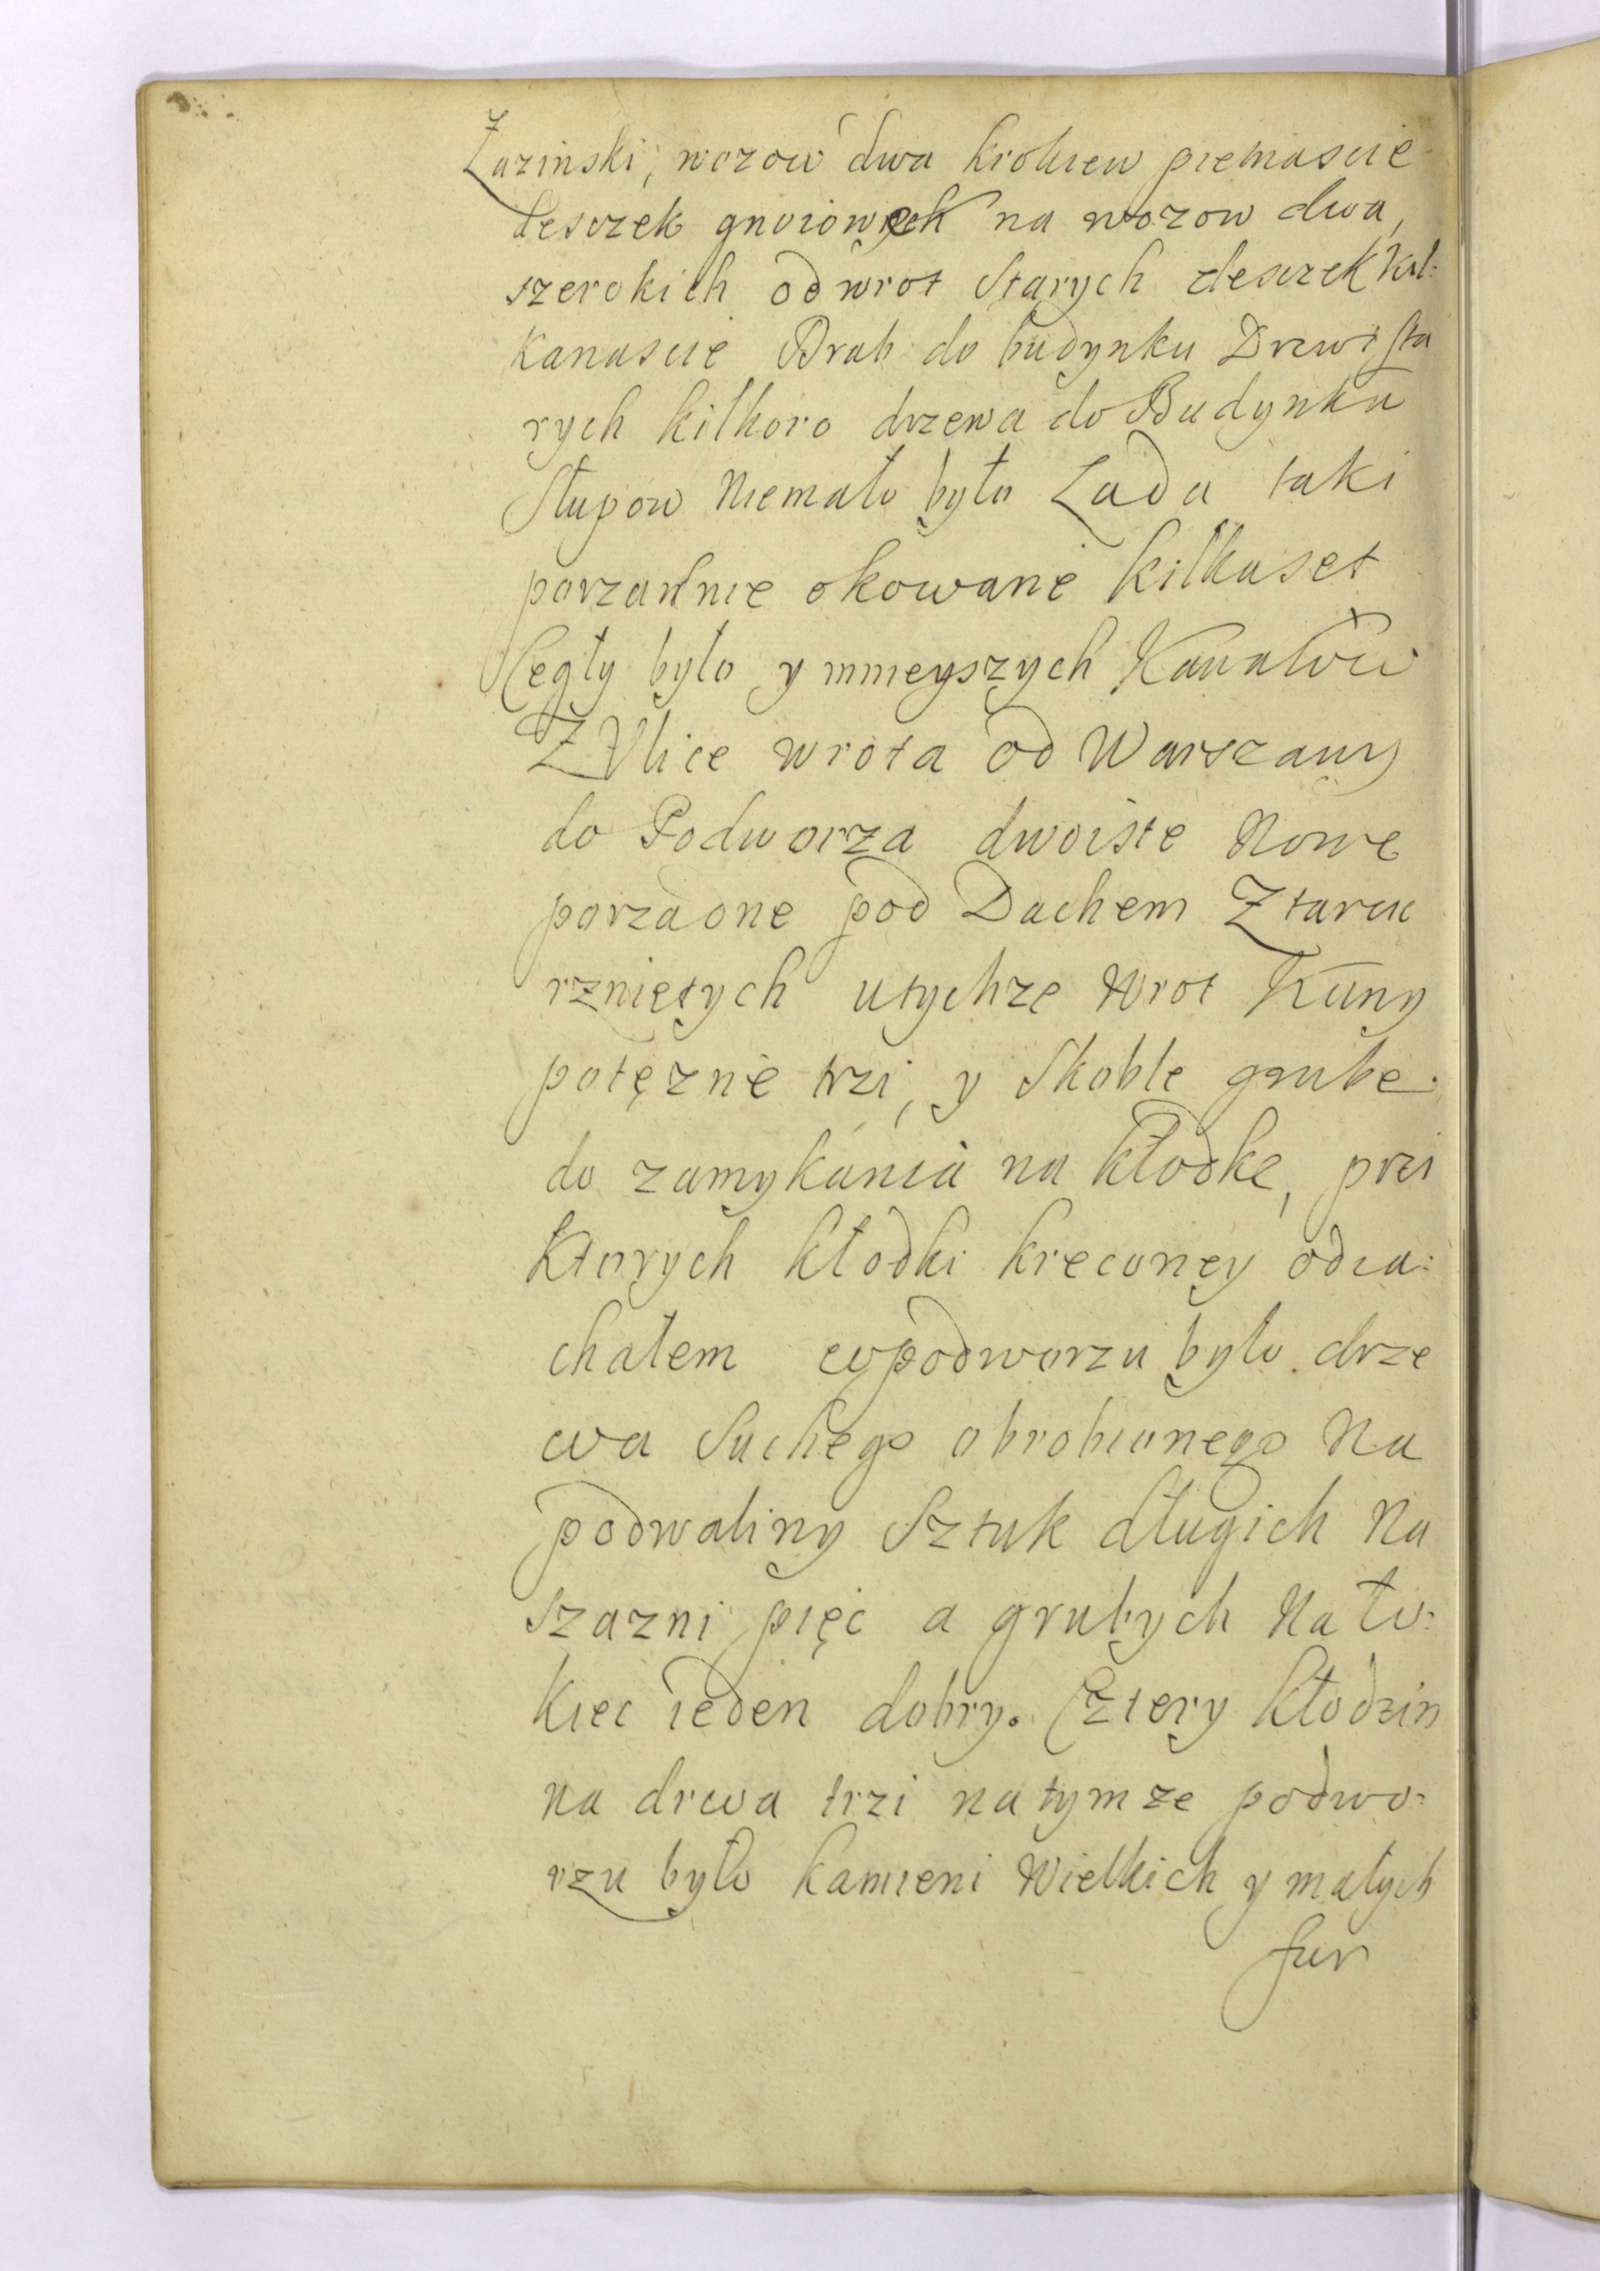 Łaziński, wozow dwa krokiew pietnascie
desczek gnoiowych na wozow dwa,
szerokich od wrot Starych desczek kil:
kanascie Brah do budynku Drzwi sta
rych kilkoro drzewa do Budynku
Słupow Niemało było Lada taki
porzadnie okowane kilkaset
Cegły było y mnieyszych Kawałow
Z Vlice wrota od Warszawy
do Podworza dwoiste Nowe
porzadne pod Dachem Z tarcic
rznietych utychze Wrot Kuny
potęzne trzi, y Skoble grube
do zamykania na kłodke, przi
Ktorych kłodki kreconey odia:
chałem w podworzu było drze
wa Suchego obrobionego Na
podwaliny Sztuk długich Na
szazni pięc a grubych Na ło:
kiec ieden dobry. Cztery kłodzin
na drwa trzi na tymze podwo:
rzu było kamieni Wielkich y małych
fur